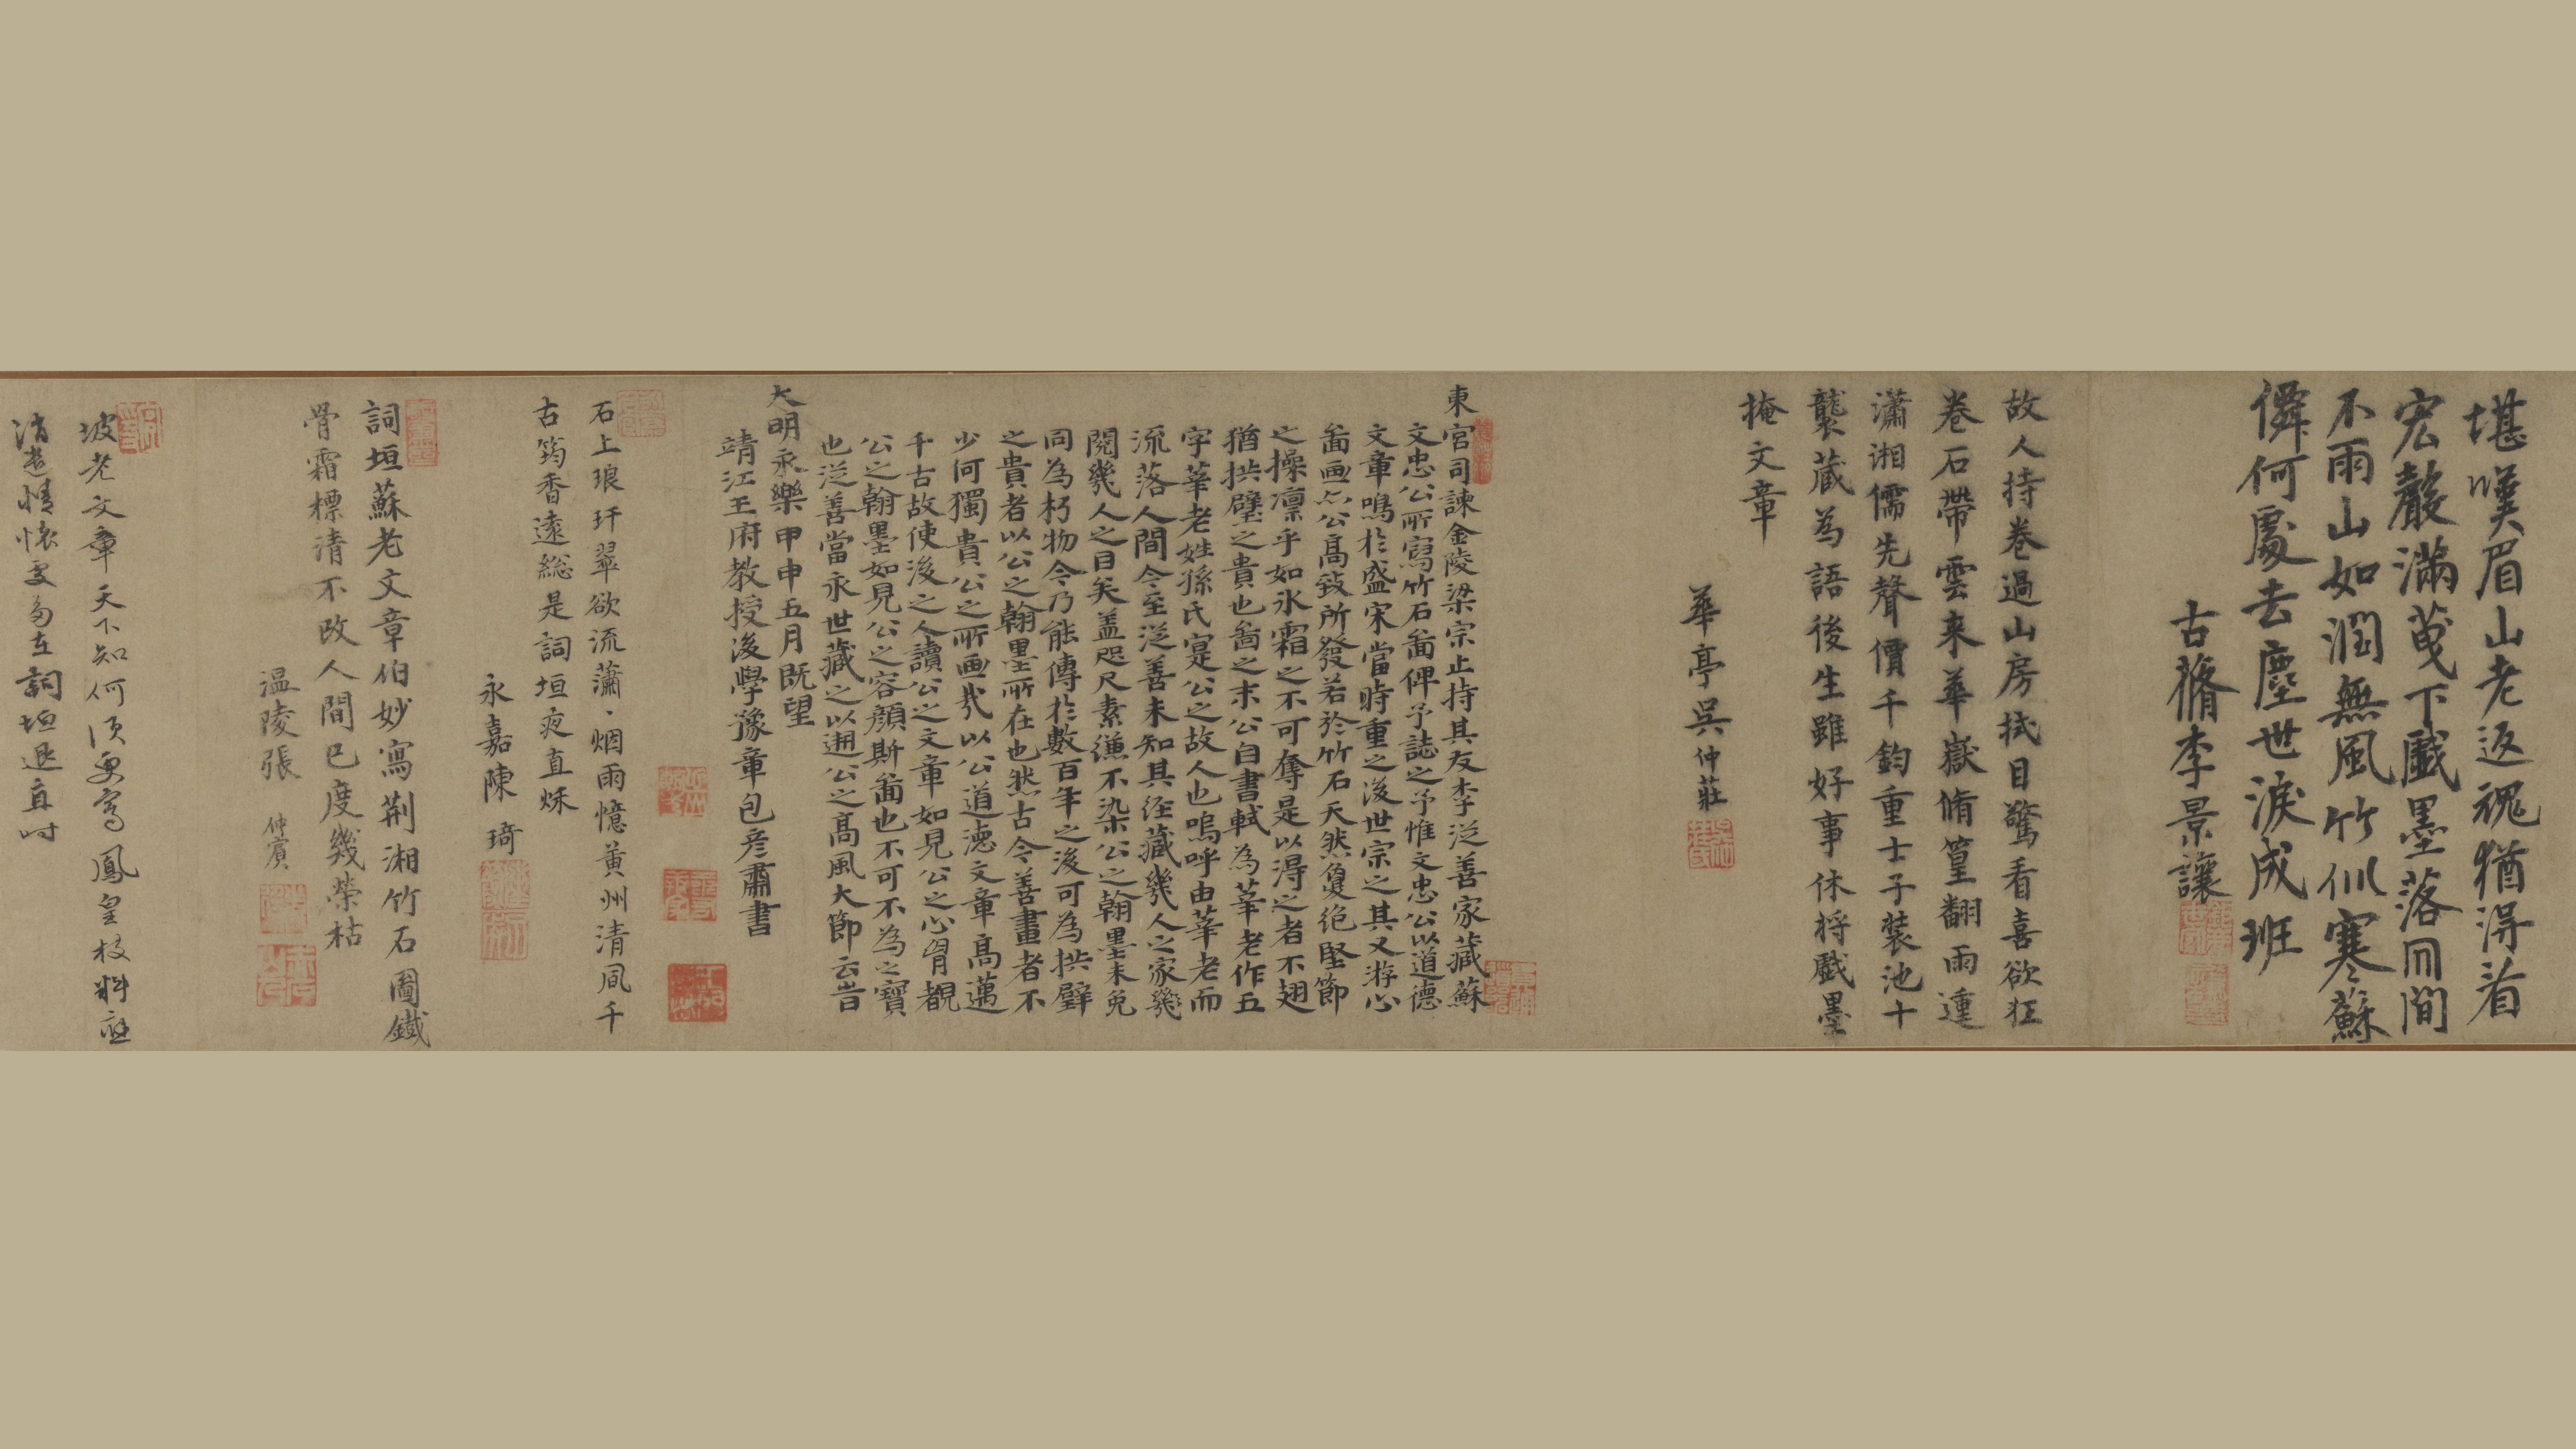 堪嘆眉山老返魂猶浔看
宏嚴滿
下戲墨落
間
不雨山如潤無風竹
寒蘇
僊何處去塵世淚成班
古蓨李景讓
故人持卷過山房拭目驚看喜欲狂
卷石帶雲来華嶽脩篁翻雨
瀟湘儒先聲價千鈞重士子裝池十
襲蔵為語後生雖好事休将戲墨
掩文章
華亭吳仲莊
東宮司諫金陵梁宗止持其友李泛善家藏蘇
文忠公所寫竹石啚俾予誌之予惟文忠公以道德
文章鳴扵盛宋當時重之浚世宗之其又游心
啚画亦公高致所發若於竹石天然敻绝堅節
之操凛乎如氷霜之不可奪是以浔之者不翅
猶拱璧之貴也啚之末公自書軾為莘老作五
字莘老姓孫氏寔公之故人也嗚呼由莘老而
流落人間今至泛善未知其経蔵幾人之家幾
閲幾人之目矣盖咫尺素縑不染公之翰墨未免
同為朽物今乃能傳扵數百年之浚可為拱璧
之貴者以公之翰墨所在也然古今善畫者不
少何獨貴公之所画㦲以公道徳文章髙邁
千古故使浚之人讀公之文章如見公之心胷覩
公之翰墨如見公之容顔斯啚也不可不為之寶
也泛善當永世藏之以遡公之髙風大節云旹
大明永樂甲申五月既望
靖江王府教授浚學豫章包彦肅書
石上琅玕翠欲流瀟〻烟雨憶黄州清風千
古筠香遠総是詞垣夜直秌
永嘉陳琦
詞垣蘇老文章伯妙寫荆湘竹石圖鐵
骨霜標清不改人間已度幾榮枯
温陵張
坡老文章天下知何須更寫鳳皇枝料應
消遣情懷
多在詞垣退直时